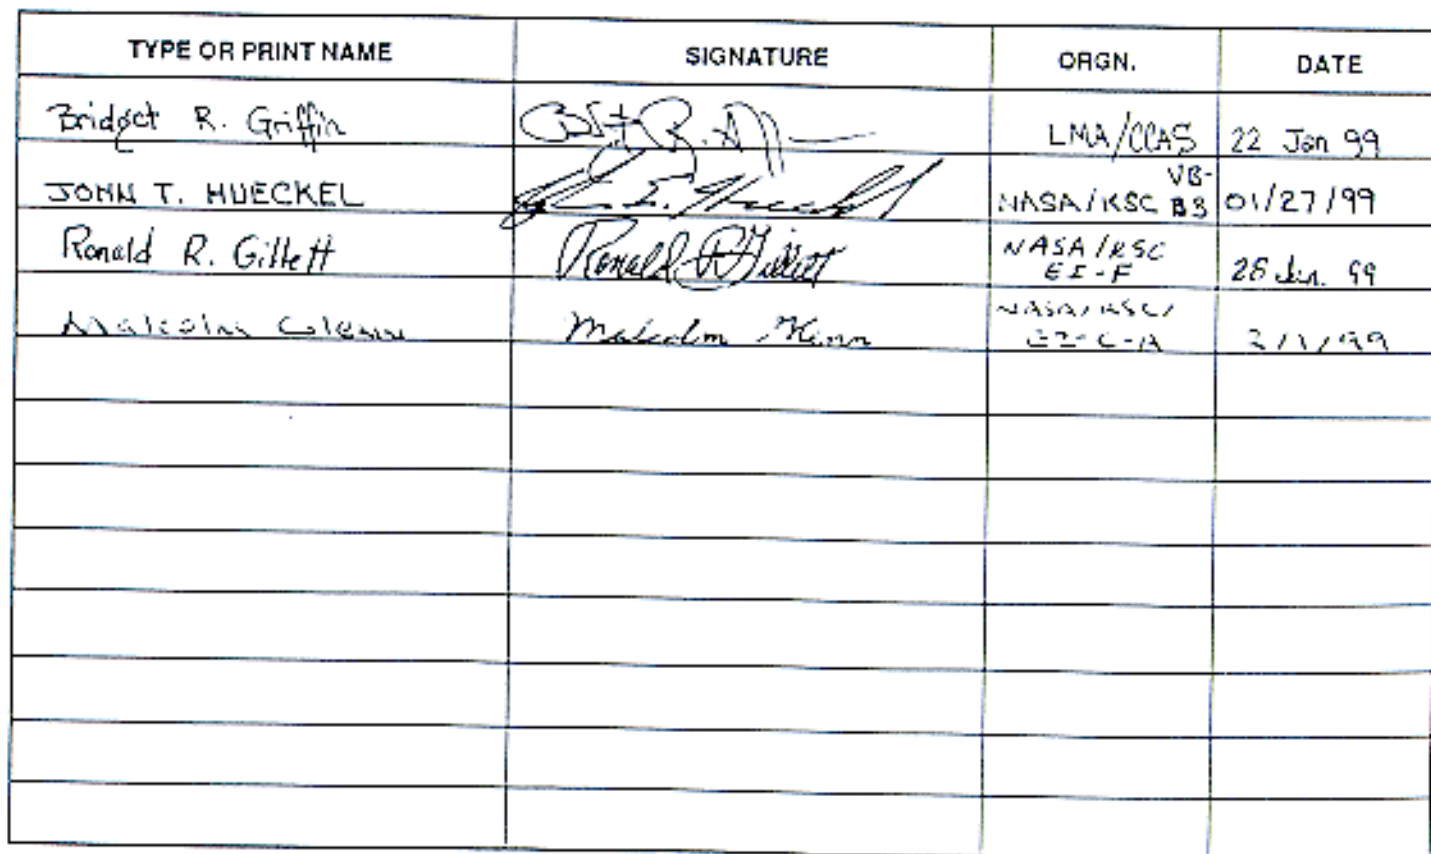 TYPE OR PRINT NAME SIGNATURE ORGN. DATE
Bridget R. Griffin LMA/CCAS 22 Jan 99
JOHN T. HUECKEL NASA/KSC VB-B3 01/27/99
Ronald R. Gillett Ronald R Gillett NASA/KSC EI-F Jan. 99
Malcolm Glenn Malcolm Glenn NASA/KSC/